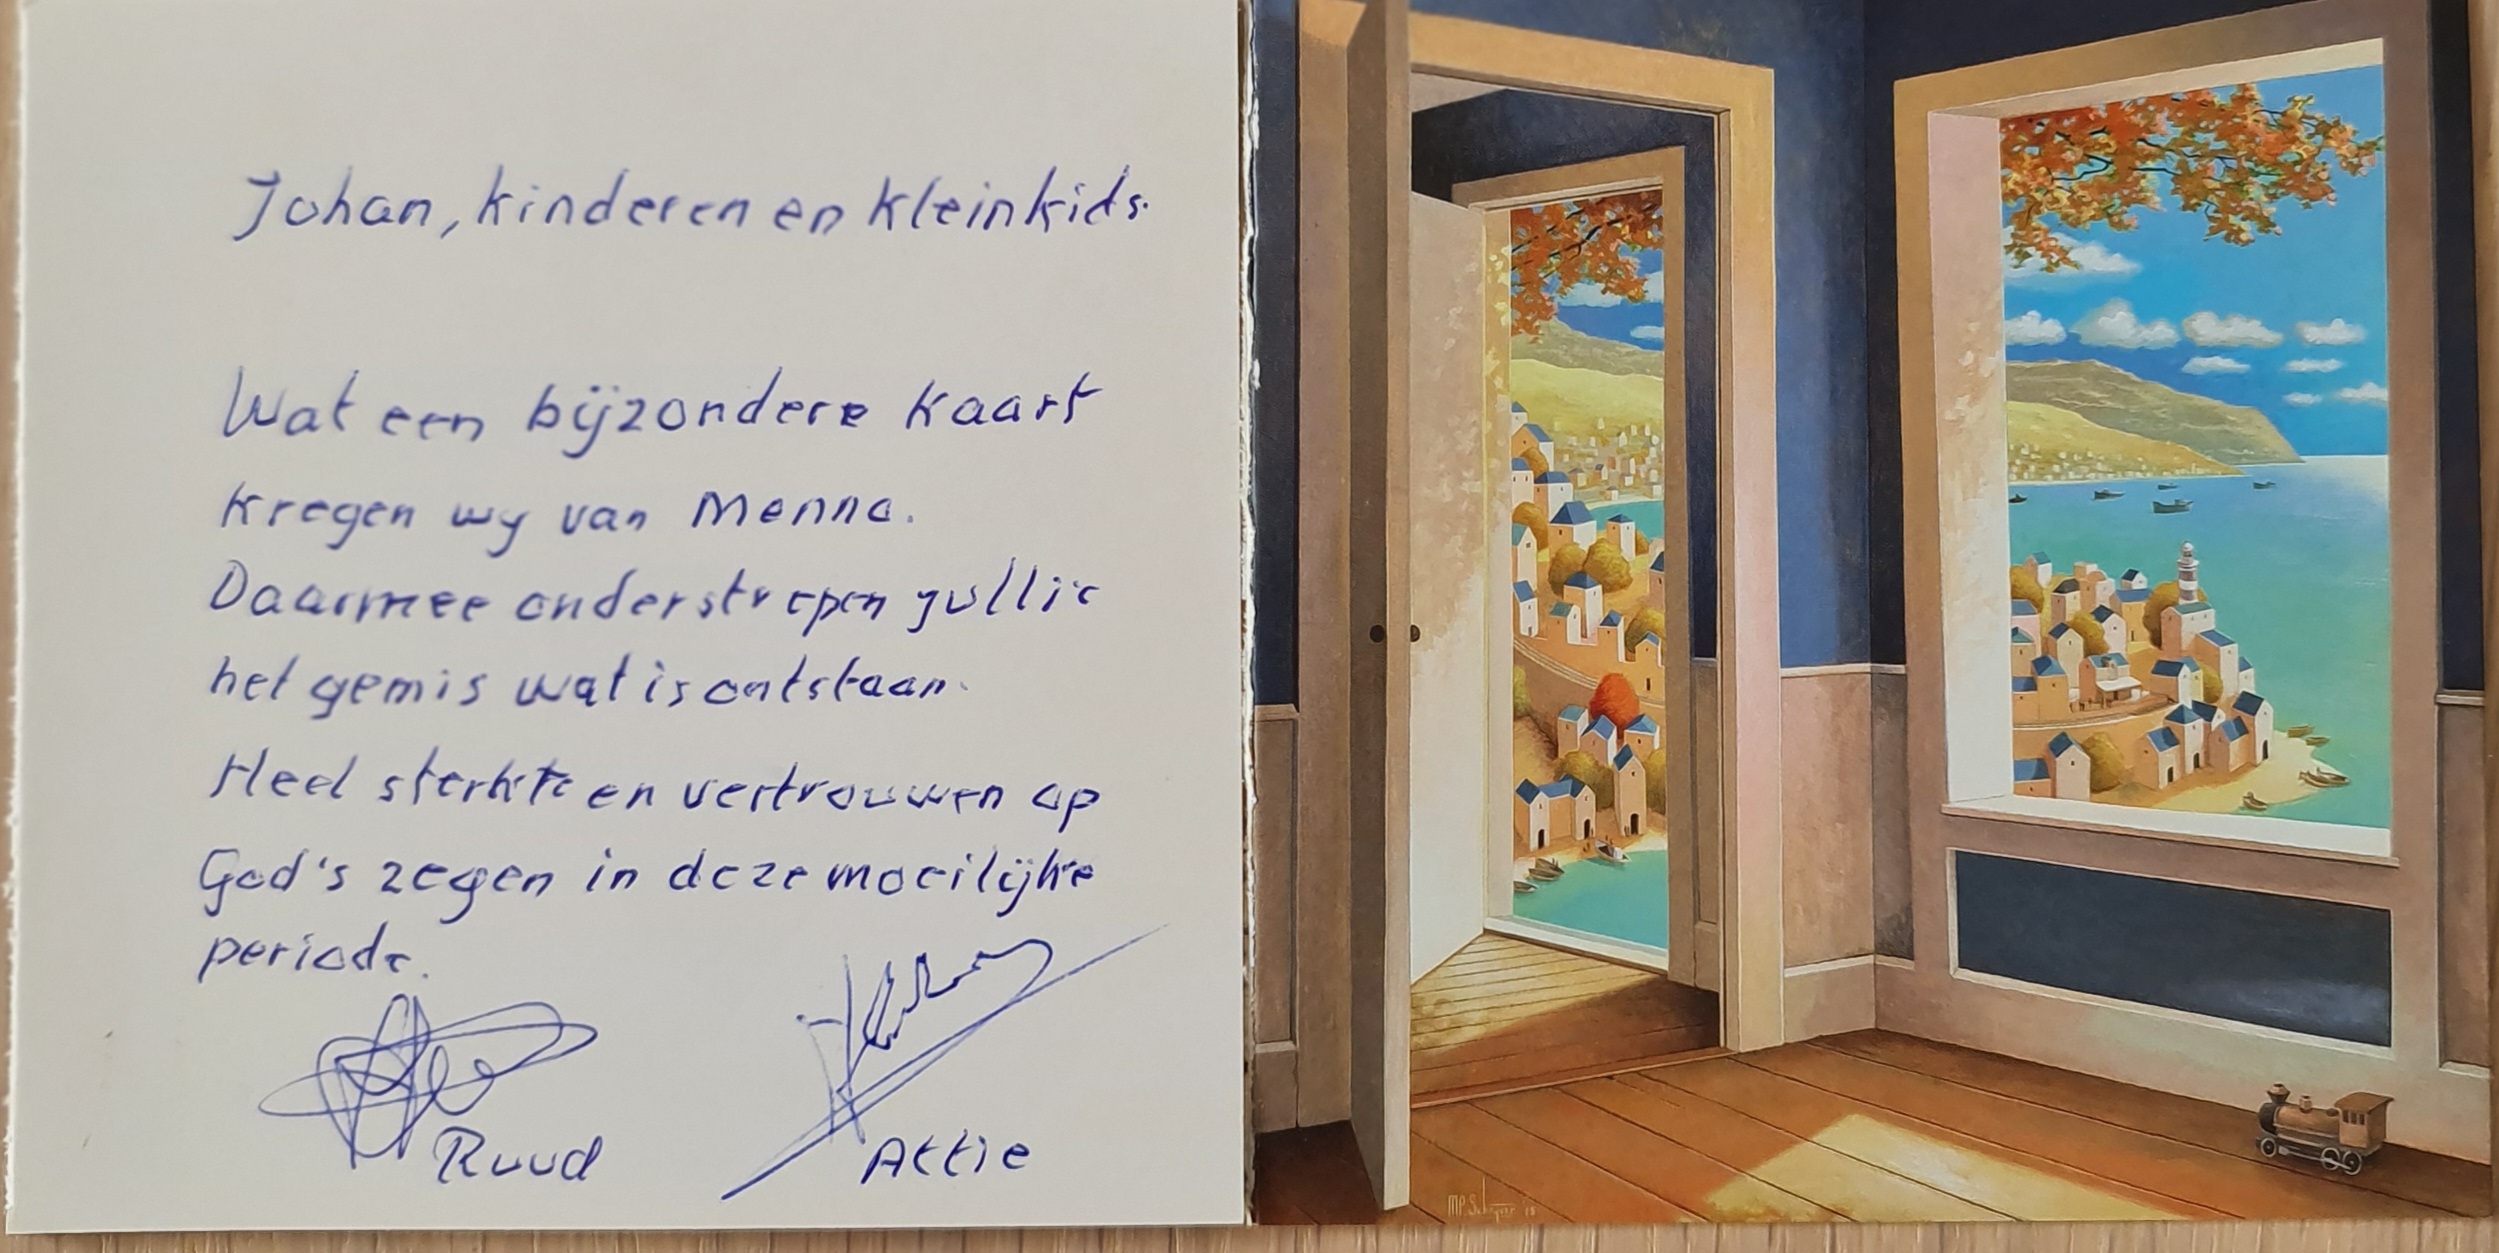 Johan, kinderen en kleinkids.
Wat een bijzondere kaart
kregen wy van Menno.
Daarmee onderstrepen jullie
het gemis wat is ontstaan.
Heel sterkte en vertrouwen op
God's zegen in deze moeilijke
periode.
Ruud Attie